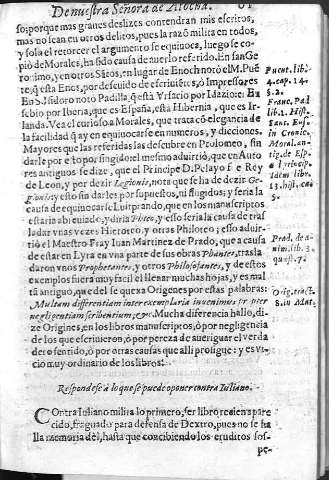 De nuestra Señora de Atocha.
so; porque mas graues deslizes contendran mis escritos,
mas no sean en otros delitos, pues la razõ milita en todos,
y sola el retorcer el argumento se equiuoca, luego se co-
piò de Morales, ha sido causa de auerlo referido. En san Ge
ronimo, y en otros Sãtos, en lugar de Enoch notò el M. Puẽ
te, q̃ esta Enos, por descuido de escriuiẽtes, ò Impressores
En S. Isidoro notò Padilla, q̃ està Yrsacio por Idazio: En Eu
sebio por Iberia, que es España, està Hibernia, que es Ir-
landa. Vea el curioso a Morales, que trata cõ elegancia de
la facilidad q̃ ay en equiuocarse en numeros, y dicciones.
Mayores que las referidas las descubre en Ptolomeo, sin
darle por e to por fingido: el mesmo aduirtiò, que en Auto
res antiguos se dize, que el Principe D. Pelayo fue Rey
de Leon, y por dezir Legionis, nota que se ha de dezir Gi-
gionis; y esto sin darles por supuestos, ni fingidos; y seria la
causa de equiuocarse Luitprando, que en los manuscriptos
estaria abreuiado, y diria Pheto, y esso seria la causa de tras
ladar vnas vezes Hieroteo, y otras Philoteo; esso aduir-
tiò el Maestro Fray Iuan Martinez de Prado, que a causa
de estar en Lyra en vna parte de sus obras Phantes, trasla
daron vnos Prophetantes, y otros Philosofantes, y de estos
exemplos fuera muy facil el llenar muchas hojas, y es mal
tã antiguo, que del se quexa Origenes por estas palabras:
Multam differentiam inter exemplaria inuenimus sr pter
negligentiam scribentium, &c. Mucha diferencia hallo, di-
ze Origines, en los libros manuscriptos, ò por negligencia
de los que escriuieron, ò por pereza de aueriguar el verda
dero sentido, ò por otras causas que alli prosigue: y es vi-
cio muy ordinario de los libros:
Respondese à lo que se puede oponer contra Iuliano.
COntra Iuliano milita lo primero, ser libro recien apare
cido, fraguado para defensa de Dextro, pues no se ha
lla memoria dèl, hasta que concibiendo los eruditos sos-
pe-
Puent. lib.
4. cap. 14.
§. 2.
Franc. Pad
lib. 1. Hist.
in Cronic.
Moral. an-
tig. de Esp
Idem libr.
13. hist. cap
5.
Prad. de a-
nim. lib. 3.
quæst. 7.
Orig. tract.
8. in Mat.